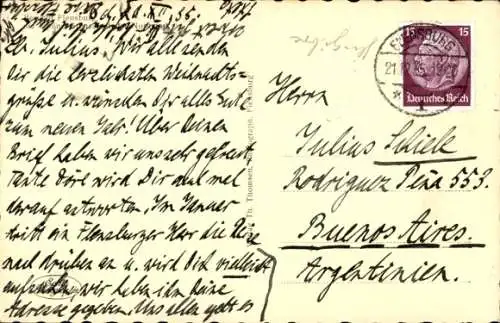 Lb. Julius! Wir alle senden
Dir die herzlichsten Weihnachts-
grüße u. wünschen Dir alles Gute
zum neuen Jahr! Über Deinen
Brief haben wir uns sehr gefreut
Tante Dore wird Dir auch mal
darauf antworten. Im Januar
tritt ein Flensburger Herr die Reise
nach drüben an u. wird Dich vielleicht
aufsuchen, wir haben ihm Deine
Adresse gegeben. Uns allen geht es
Thomsen
FLENSBURG
15 15
Deutsches Reich
Herrn
Julius Schiele
Rodriguez Peña 553.
Buenos Aires.
Argentinien.